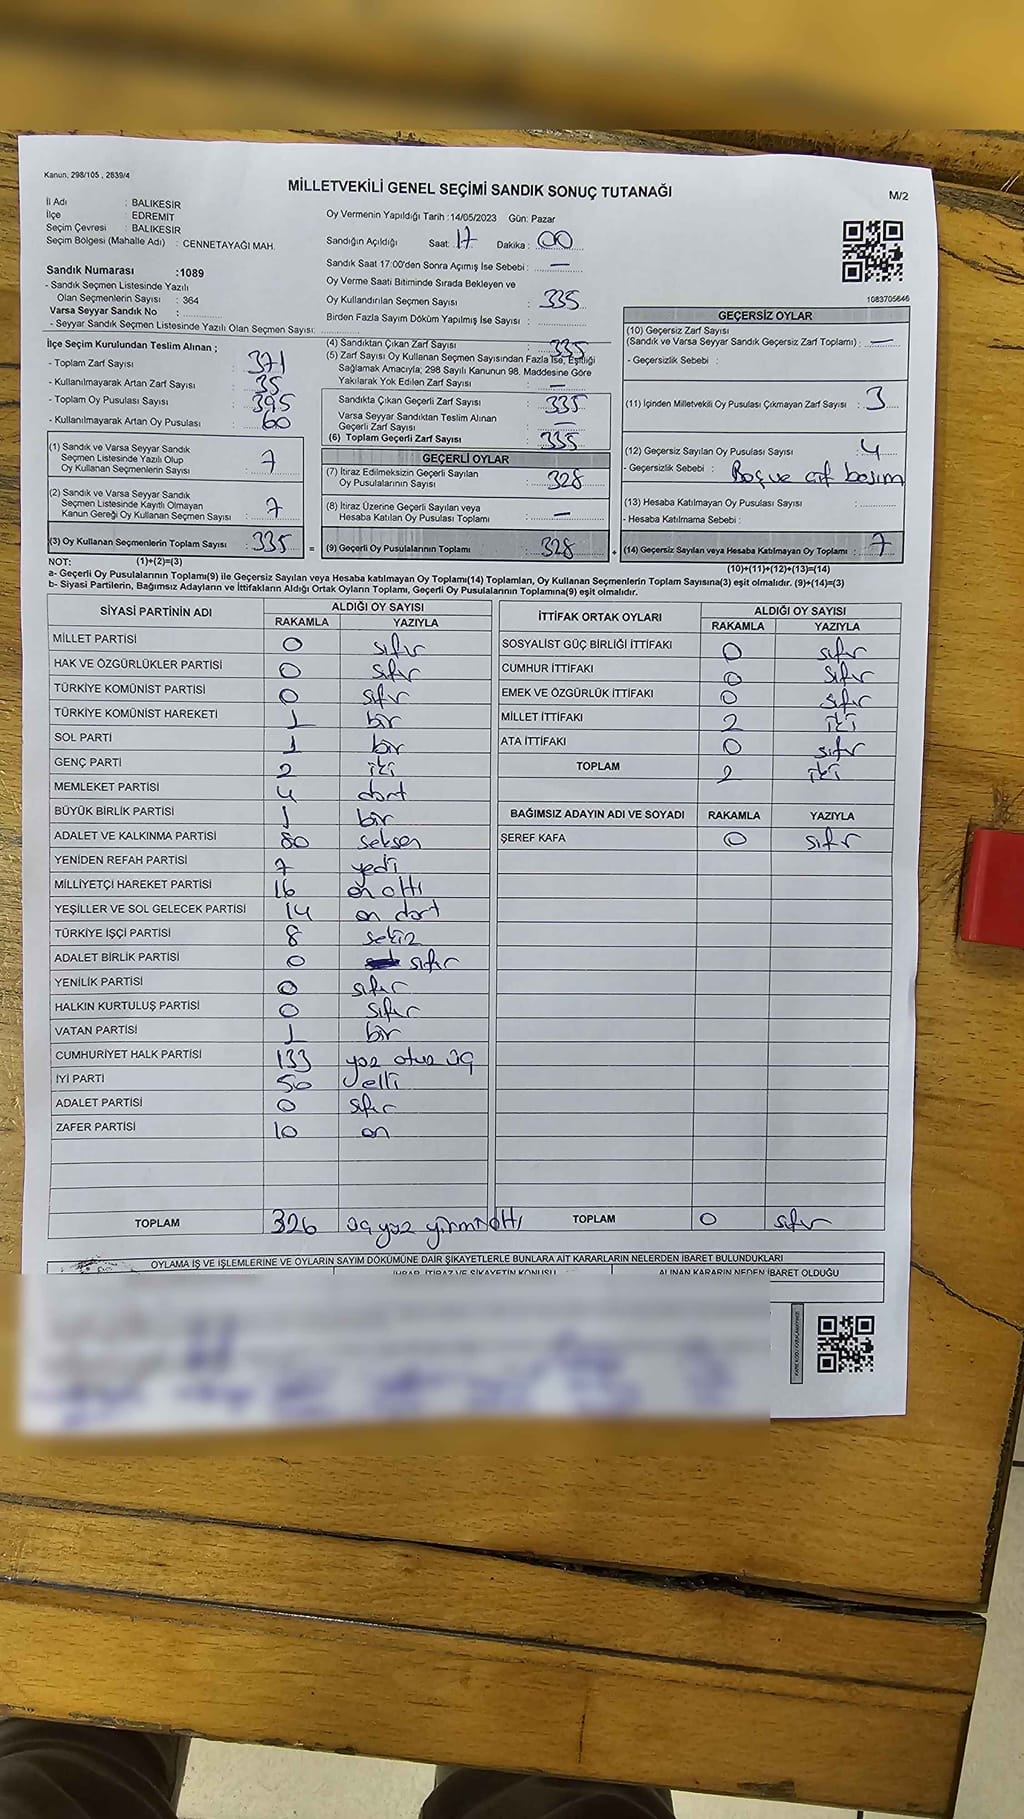 Kanun, 298/105 , 2839/4
MİLLETVEKİLİ GENEL SEÇİMİ SANDIK SONUÇ TUTANAĞI
M/2
İl Adı : BALIKESİR
İlçe : EDREMİT
Seçim Çevresi : BALIKESİR
Seçim Bölgesi (Mahalle Adı) : CENNETAYAĞI MAH.
Oy Vermenin Yapıldığı Tarih :14/05/2023 Gün: Pazar
Sandığın Açıldığı Saat: 17 Dakika : 00
Sandık Saat 17:00'den Sonra Açımış İse Sebebi : —
Oy Verme Saati Bitiminde Sırada Bekleyen ve
Oy Kullandırılan Seçmen Sayısı : 335
Birden Fazla Sayım Döküm Yapılmış İse Sayısı :
Sandık Numarası :1089
- Sandık Seçmen Listesinde Yazılı
Olan Seçmenlerin Sayısı : 364
Varsa Seyyar Sandık No :
- Seyyar Sandık Seçmen Listesinde Yazılı Olan Seçmen Sayısı:
1083705646
İlçe Seçim Kurulundan Teslim Alınan ;
- Toplam Zarf Sayısı : 371
- Kullanılmayarak Artan Zarf Sayısı : 35
- Toplam Oy Pusulası Sayısı : 395
- Kullanılmayarak Artan Oy Pusulası : 60
(1) Sandık ve Varsa Seyyar Sandık
Seçmen Listesinde Yazılı Olup
Oy Kullanan Seçmenlerin Sayısı : 7
(2) Sandık ve Varsa Seyyar Sandık
Seçmen Listesinde Kayıtlı Olmayan
Kanun Gereği Oy Kullanan Seçmen Sayısı : 7
(3) Oy Kullanan Seçmenlerin Toplam Sayısı : 335 =
(1)+(2)=(3)
(4) Sandıktan Çıkan Zarf Sayısı : 335
(5) Zarf Sayısı Oy Kullanan Seçmen Sayısından Fazla İse, Eşitliği
Sağlamak Amacıyla; 298 Sayılı Kanunun 98. Maddesine Göre
Yakılarak Yok Edilen Zarf Sayısı : —
Sandıkta Çıkan Geçerli Zarf Sayısı : 335
Varsa Seyyar Sandıktan Teslim Alınan
Geçerli Zarf Sayısı : —
(6) Toplam Geçerli Zarf Sayısı : 335
GEÇERLİ OYLAR
(7) İtiraz Edilmeksizin Geçerli Sayılan
Oy Pusulalarının Sayısı : 328
(8) İtiraz Üzerine Geçerli Sayılan veya
Hesaba Katılan Oy Pusulası Toplamı : —
(9) Geçerli Oy Pusulalarının Toplamı : 328 +
GEÇERSİZ OYLAR
(10) Geçersiz Zarf Sayısı
(Sandık ve Varsa Seyyar Sandık Geçersiz Zarf Toplamı) : —
- Geçersizlik Sebebi :
(11) İçinden Milletvekili Oy Pusulası Çıkmayan Zarf Sayısı : 3
(12) Geçersiz Sayılan Oy Pusulası Sayısı : 4
- Geçersizlik Sebebi : Boş ve çift basım
(13) Hesaba Katılmayan Oy Pusulası Sayısı :
- Hesaba Katılmama Sebebi :
(14) Geçersiz Sayılan veya Hesaba Katılmayan Oy Toplamı : 7
(10)+(11)+(12)+(13)=(14)
NOT:
a- Geçerli Oy Pusulalarının Toplamı(9) ile Geçersiz Sayılan veya Hesaba katılmayan Oy Toplamı(14) Toplamları, Oy Kullanan Seçmenlerin Toplam Sayısına(3) eşit olmalıdır. (9)+(14)=(3)
b- Siyasi Partilerin, Bağımsız Adayların ve İttifakların Aldığı Ortak Oyların Toplamı, Geçerli Oy Pusulalarının Toplamına(9) eşit olmalıdır.
SİYASİ PARTİNİN ADI ALDIĞI OY SAYISI
RAKAMLA YAZIYLA
MİLLET PARTİSİ 0 sıfır
HAK VE ÖZGÜRLÜKLER PARTİSİ 0 sıfır
TÜRKİYE KOMÜNİST PARTİSİ 0 sıfır
TÜRKİYE KOMÜNİST HAREKETİ 1 bir
SOL PARTİ 1 bir
GENÇ PARTİ 2 iki
MEMLEKET PARTİSİ 4 dört
BÜYÜK BİRLİK PARTİSİ 1 bir
ADALET VE KALKINMA PARTİSİ 80 seksen
YENİDEN REFAH PARTİSİ 7 yedi
MİLLİYETÇİ HAREKET PARTİSİ 16 on altı
YEŞİLLER VE SOL GELECEK PARTİSİ 14 on dört
TÜRKİYE İŞÇİ PARTİSİ 8 sekiz
ADALET BİRLİK PARTİSİ 0 sıfır
YENİLİK PARTİSİ 0 sıfır
HALKIN KURTULUŞ PARTİSİ 0 sıfır
VATAN PARTİSİ 1 bir
CUMHURİYET HALK PARTİSİ 133 yüz otuz üç
İYİ PARTİ 50 elli
ADALET PARTİSİ 0 sıfır
ZAFER PARTİSİ 10 on
TOPLAM 326 üç yüz yirmi altı
İTTİFAK ORTAK OYLARI ALDIĞI OY SAYISI
RAKAMLA YAZIYLA
SOSYALİST GÜÇ BİRLİĞİ İTTİFAKI 0 sıfır
CUMHUR İTTİFAKI 0 sıfır
EMEK VE ÖZGÜRLÜK İTTİFAKI 0 sıfır
MİLLET İTTİFAKI 2 iki
ATA İTTİFAKI 0 sıfır
TOPLAM 2 iki
BAĞIMSIZ ADAYIN ADI VE SOYADI RAKAMLA YAZIYLA
ŞEREF KAFA 0 sıfır
TOPLAM 0 sıfır
OYLAMA İŞ VE İŞLEMLERİNE VE OYLARIN SAYIM DÖKÜMÜNE DAİR ŞİKAYETLERLE BUNLARA AİT KARARLARIN NELERDEN İBARET BULUNDUKLARI
İHBAR, İTİRAZ VE ŞİKAYETİN KONUSU ALINAN KARARIN NEDEN İBARET OLDUĞU